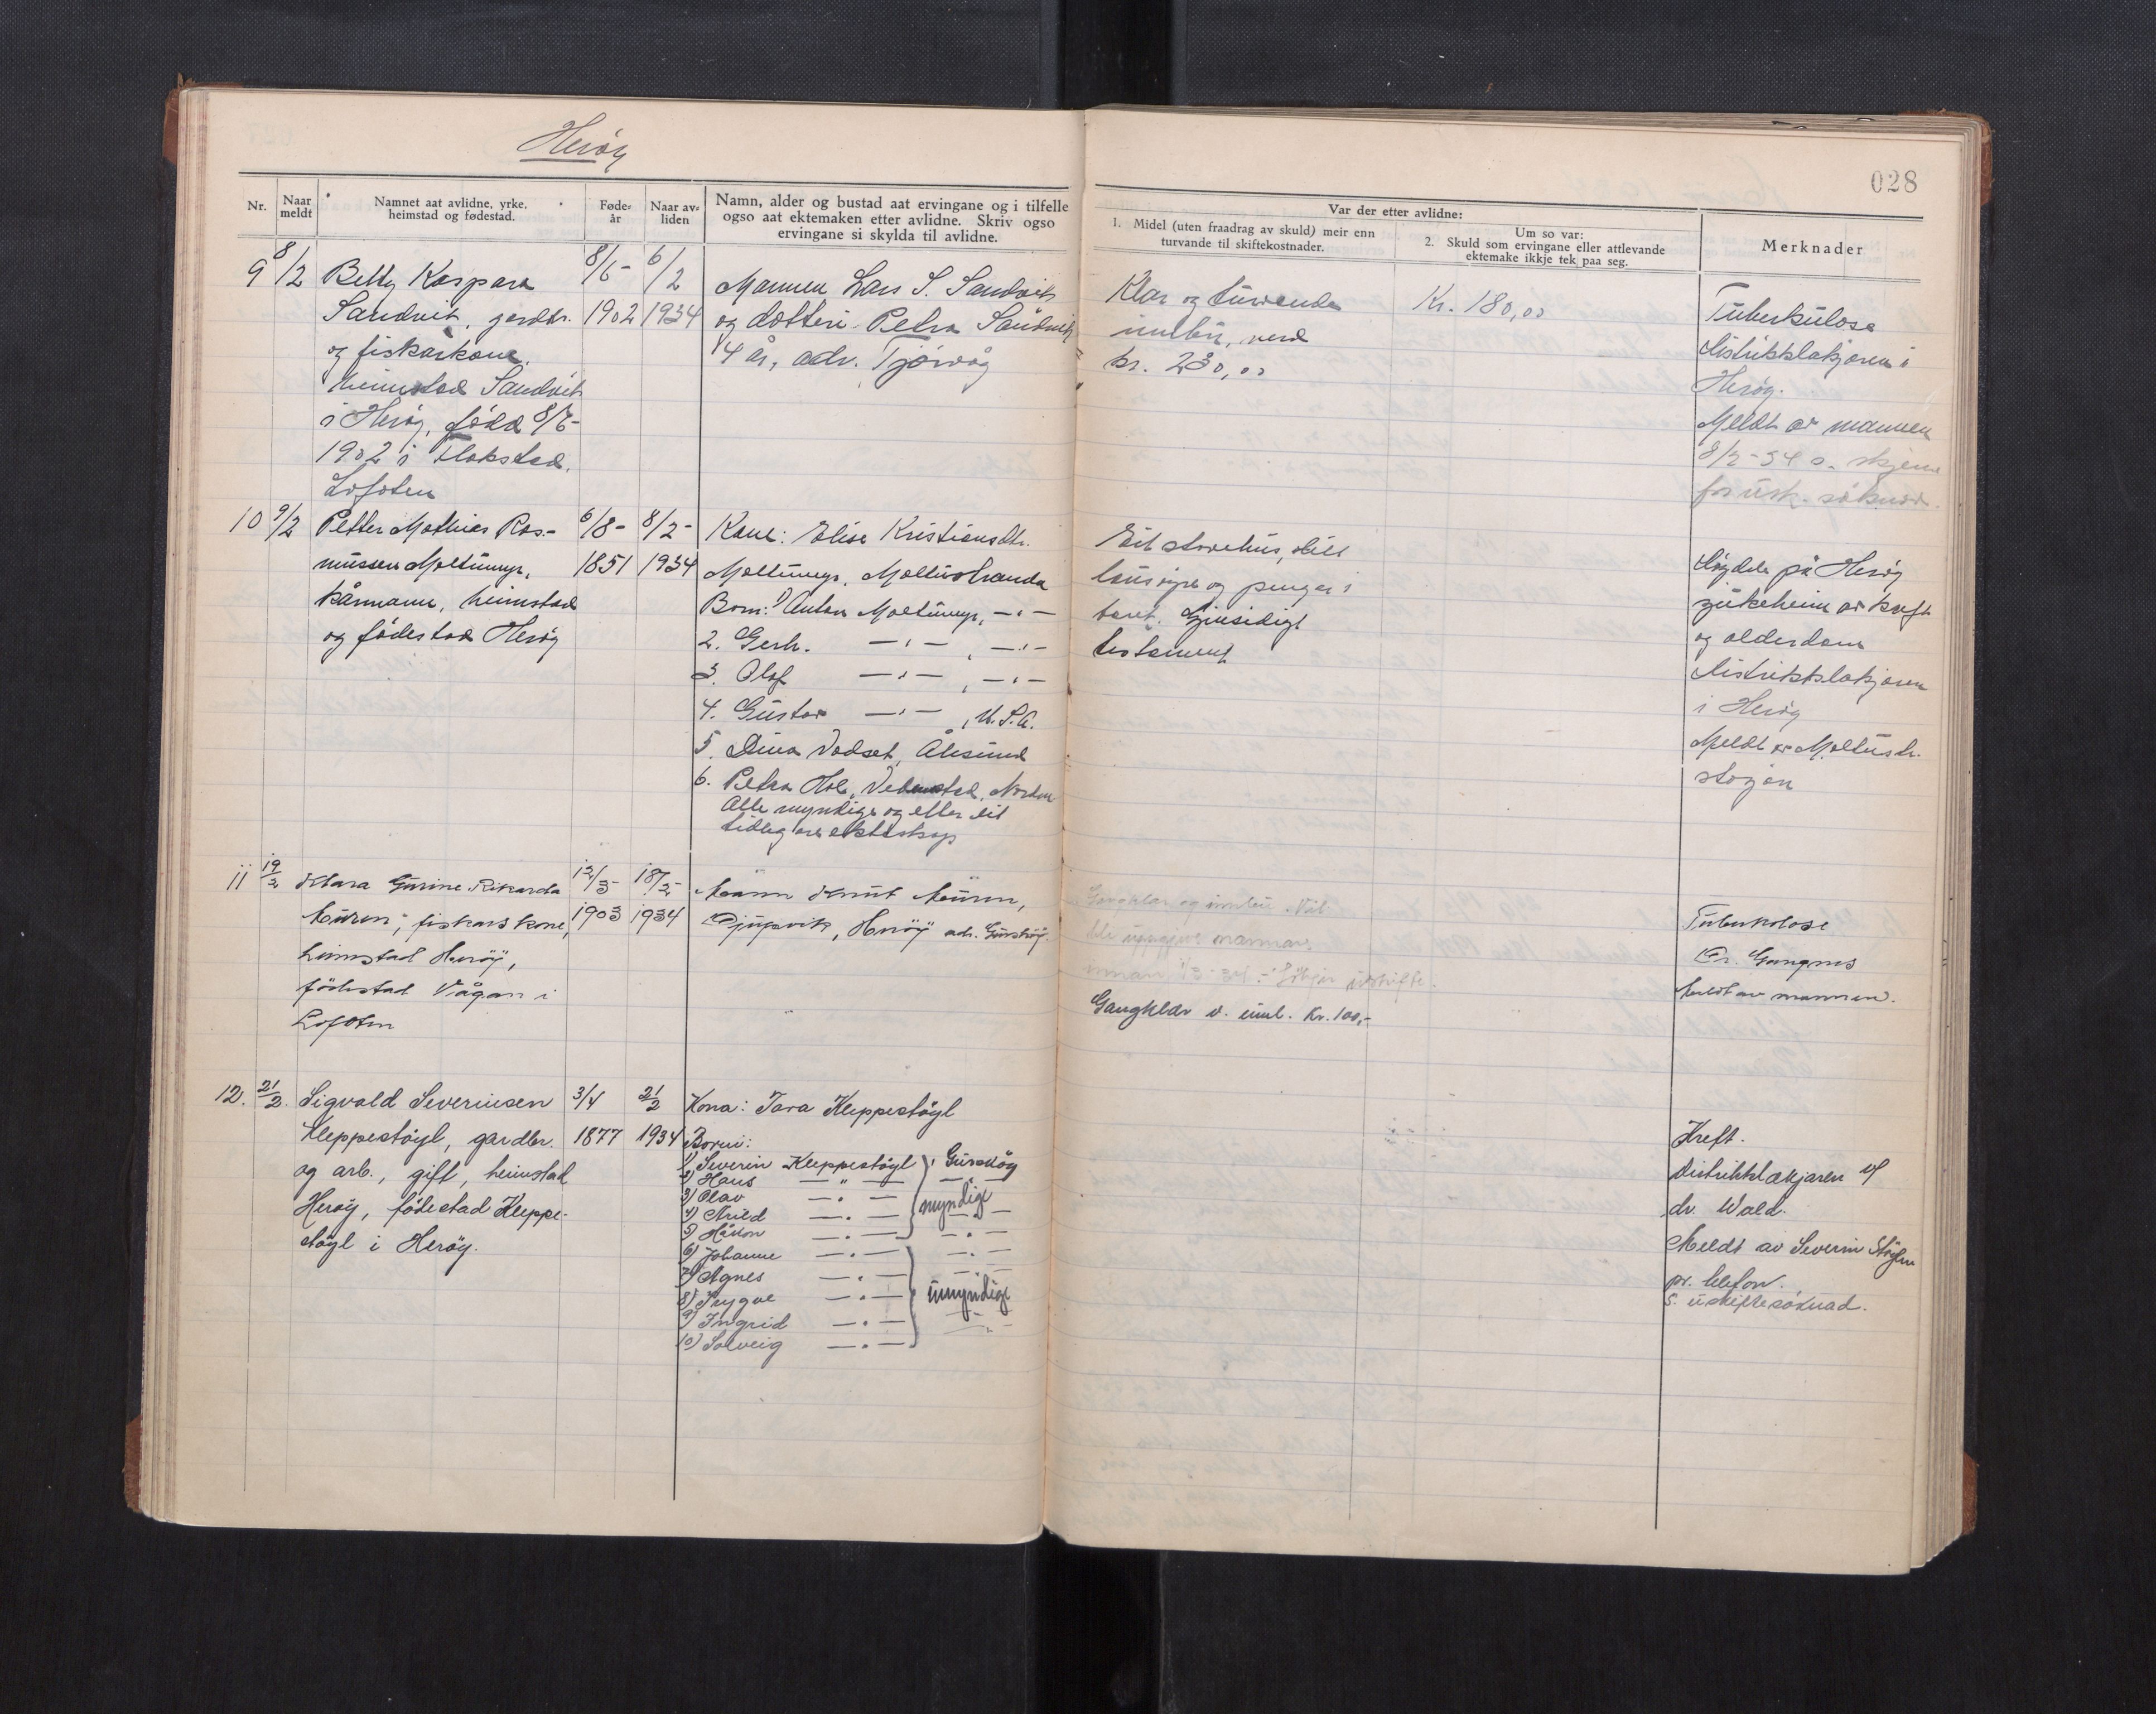 Herøy
028
Nr.
Naar meldt
Namnet aat avlidne, yrke, heimstad og fødestad.
Føde-år
Naar av-liden
Namn, alder og bustad aat ervingane og i tilfelle
ogso aat ektemaken etter avlidne. Skriv ogso
ervingane si skylda til avlidne.
Var der etter avlidne:
1. Midel (uten fraadrag av skuld) meir enn
turvande til skiftekostnader.
Um so var:
2. Skuld som ervingane eller attlevande
ektemake ikkje tek paa seg.
Merknader
9 8/2 Betty Kaspara
Sandvik, gardbr.
og fiskarkone,
heimstad Sandvik
i Herøy, född 8/6-
1902 i Flakstad,
Lofoten
8/6-
1902
6/2
1934
Mannen Lars S. Sandvik
og dotteri Petra Sandvik
14 år, adr. Tjørvåg
Klær og turvende
innbu, verd
kr. 230,00
Kr. 180,00
Tuberkulose
Distriktslækjaren i
Herøy.
Meldt av mannen
8/2-34 s. skjema
for usk. søknad.
10 9/2 Petter Mathias Ras-
mussen Moltumyr,
kårmann, heimstad
og födestad Herøy
6/8-
1851
8/2-
1934
Kone: Elise Kristiansdtr.
Moltumyr, Moltustranda
Born: 1) Anton Moltumyr, -"-
2. Gerh. -"- , -"-
3. Olaf -"- , -"-
4. Gustav -"- , U.S.A.
5. Dina Vadset, Ålesund
6. Petra Hol, Vevelstad, Nordm.
Alle myndige og etter eit
tidlegare ekteskap
Eit stovehus, litt
lausøyre og pengar i
bank. Gjensidigt
testament
Døydde på Herøy
sjukeheim av kreft
og alderdom
Distriktslækjaren
i Herøy
Meldt av Moltustr.
stasjon
11 19/2 Klara Gurine Rikarda
Muren, fiskars kone,
heimstad Herøy,
födestad Vågan i
Lofoten
12/5
1903
18/2
1934
Mann Knut Muren,
Djupvik, Herøy adr. Gurskøy.
Gangklær og innbu
Gangklær o. innb. Kr. 100,-
Tuberkolose
Dr. Gangnes
Meldt av mannen.
12. 21/2. Sigvald Severinsen
Kleppestøyl, gardbr.
og arb., gift, heimstad
Herøy, fødestad Kleppe-
støyl i Herøy.
3/4
1877
21/2
1934
Kona: Tara Kleppestøyl
Borni:
1) Severin Kleppestøyl, Gurskøy
2) Hans -"- -"-
3) Olav -"- myndige
4) Arild -"- -"-
5) Håkon -"- -"-
6) Johanne -"- -"-
7) Agnes -"- -"-
8) Trygve -"- umyndige
9) Ingrid -"- -"-
10) Solveig -"-
Kreft.
Distriktslækjaren v/
dr. Wald.
Meldt av Severin Støylen
pr. telefon.
S. uskiftesøknad.